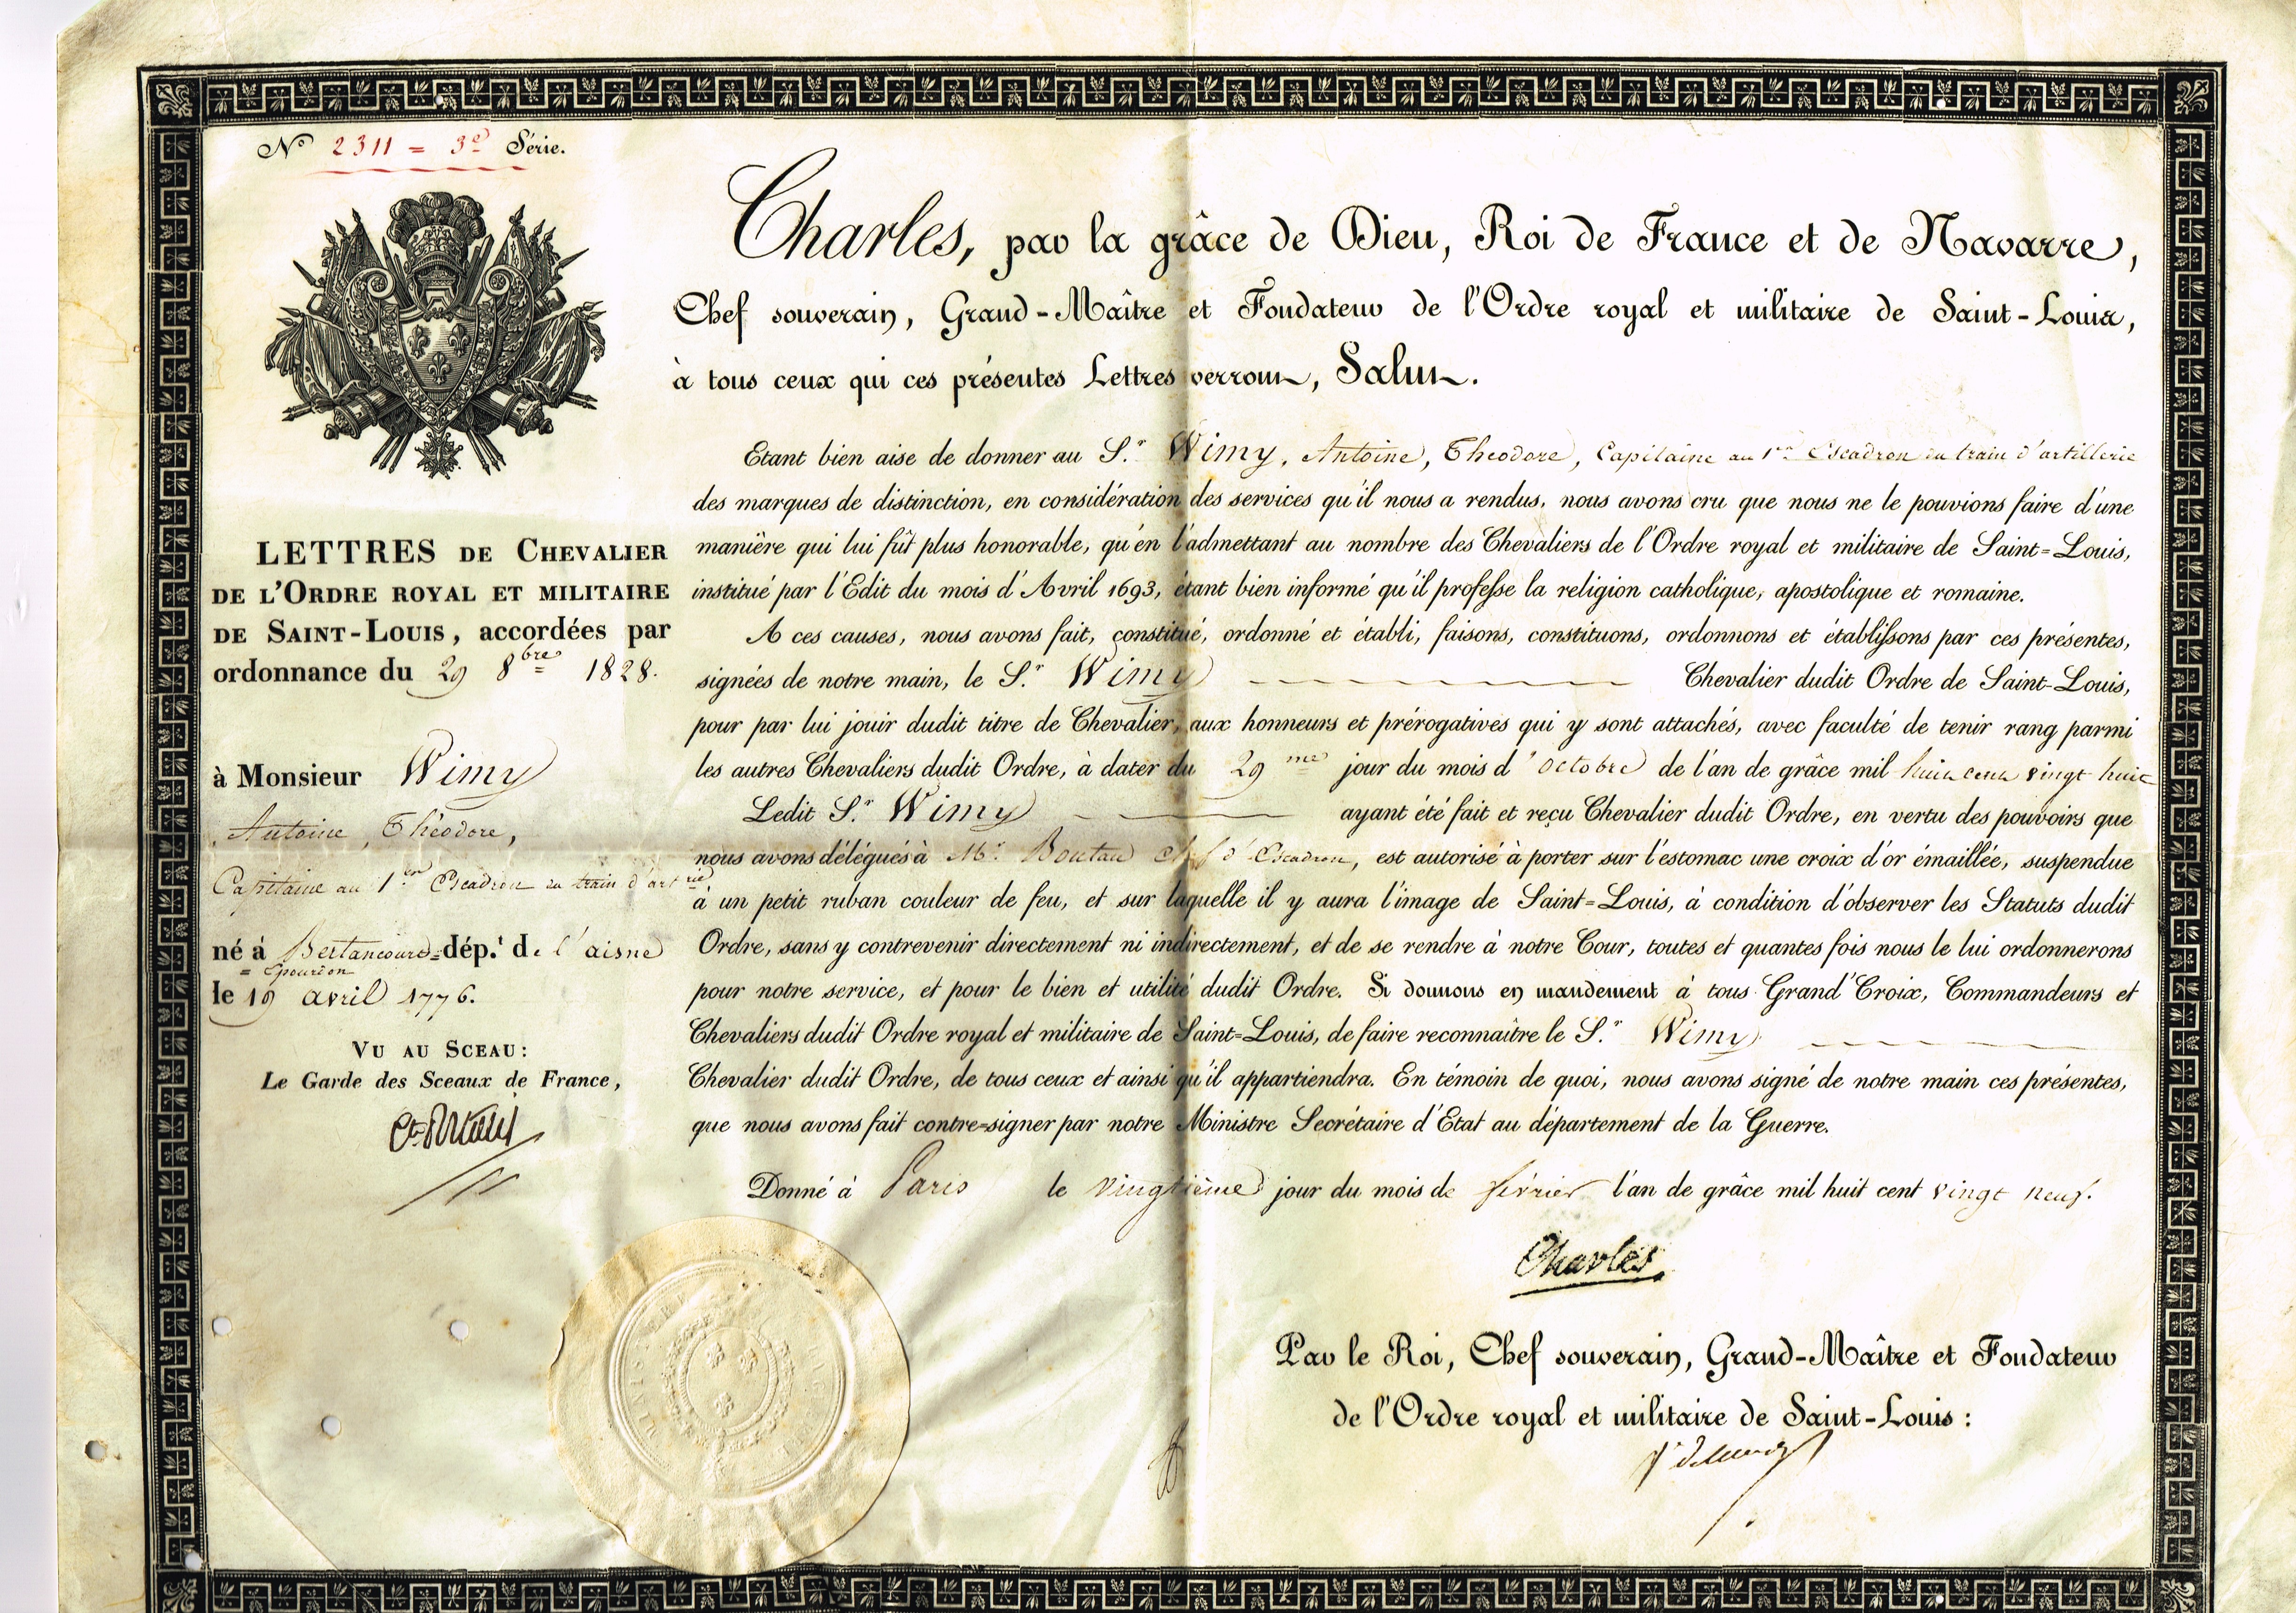 N° 2311 = 3e Série.
LETTRES DE CHEVALIER
DE L'ORDRE ROYAL ET MILITAIRE
DE SAINT-LOUIS, accordées par
ordonnance du 29 8bre 1828.
à Monsieur Wimy
Antoine, Théodore,
Capitaine au 1er Escadron du train d'artrie
né à Bertancourt = dép.t de l'aisne
= Epourdon
le 19 avril 1776.
VU AU SCEAU:
Le Garde des Sceaux de France,
Charles, par la grâce de Dieu, Roi de France et de Navarre,
Chef souverain, Grand-Maître et Fondateur de l'Ordre royal et militaire de Saint-Louis,
à tous ceux qui ces présentes Lettres verront, Salut.
Etant bien aise de donner au S.r Wimy, Antoine, Théodore, Capitaine au 1er Escadron du train d'artillerie
des marques de distinction, en considération des services qu'il nous a rendus, nous avons cru que nous ne le pouvions faire d'une
manière qui lui fût plus honorable, qu'en l'admettant au nombre des Chevaliers de l'Ordre royal et militaire de Saint=Louis,
institué par l'Edit du mois d'Avril 1693, étant bien informé qu'il professe la religion catholique, apostolique et romaine.
A ces causes, nous avons fait, constitué, ordonné et établi, faisons, constituons, ordonnons et établissons par ces présentes,
signées de notre main, le S.r Wimy Chevalier dudit Ordre de Saint-Louis,
pour par lui jouir dudit titre de Chevalier, aux honneurs et prérogatives qui y sont attachés, avec faculté de tenir rang parmi
les autres Chevaliers dudit Ordre, à dater du 29me jour du mois d'octobre de l'an de grâce mil huit cent vingt huit
Ledit S.r Wimy ayant été fait et reçu Chevalier dudit Ordre, en vertu des pouvoirs que
nous avons délégués à Mr. Boutau chef d'Escadron, est autorisé à porter sur l'estomac une croix d'or émaillée, suspendue
à un petit ruban couleur de feu, et sur laquelle il y aura l'image de Saint=Louis, à condition d'observer les Statuts dudit
Ordre, sans y contrevenir directement ni indirectement, et de se rendre à notre Cour, toutes et quantes fois nous le lui ordonnerons
pour notre service, et pour le bien et utilité dudit Ordre. Si donnons en mandement à tous Grand'Croix, Commandeurs et
Chevaliers dudit Ordre royal et militaire de Saint=Louis, de faire reconnaître le S.r Wimy
Chevalier dudit Ordre, de tous ceux et ainsi qu'il appartiendra. En témoin de quoi, nous avons signé de notre main ces présentes,
que nous avons fait contre=signer par notre Ministre Secrétaire d'Etat au département de la Guerre.
Donné à Paris le vingtième jour du mois de février l'an de grâce mil huit cent vingt neuf.
Charles
Par le Roi, Chef souverain, Grand-Maître et Fondateur
de l'Ordre royal et militaire de Saint-Louis :